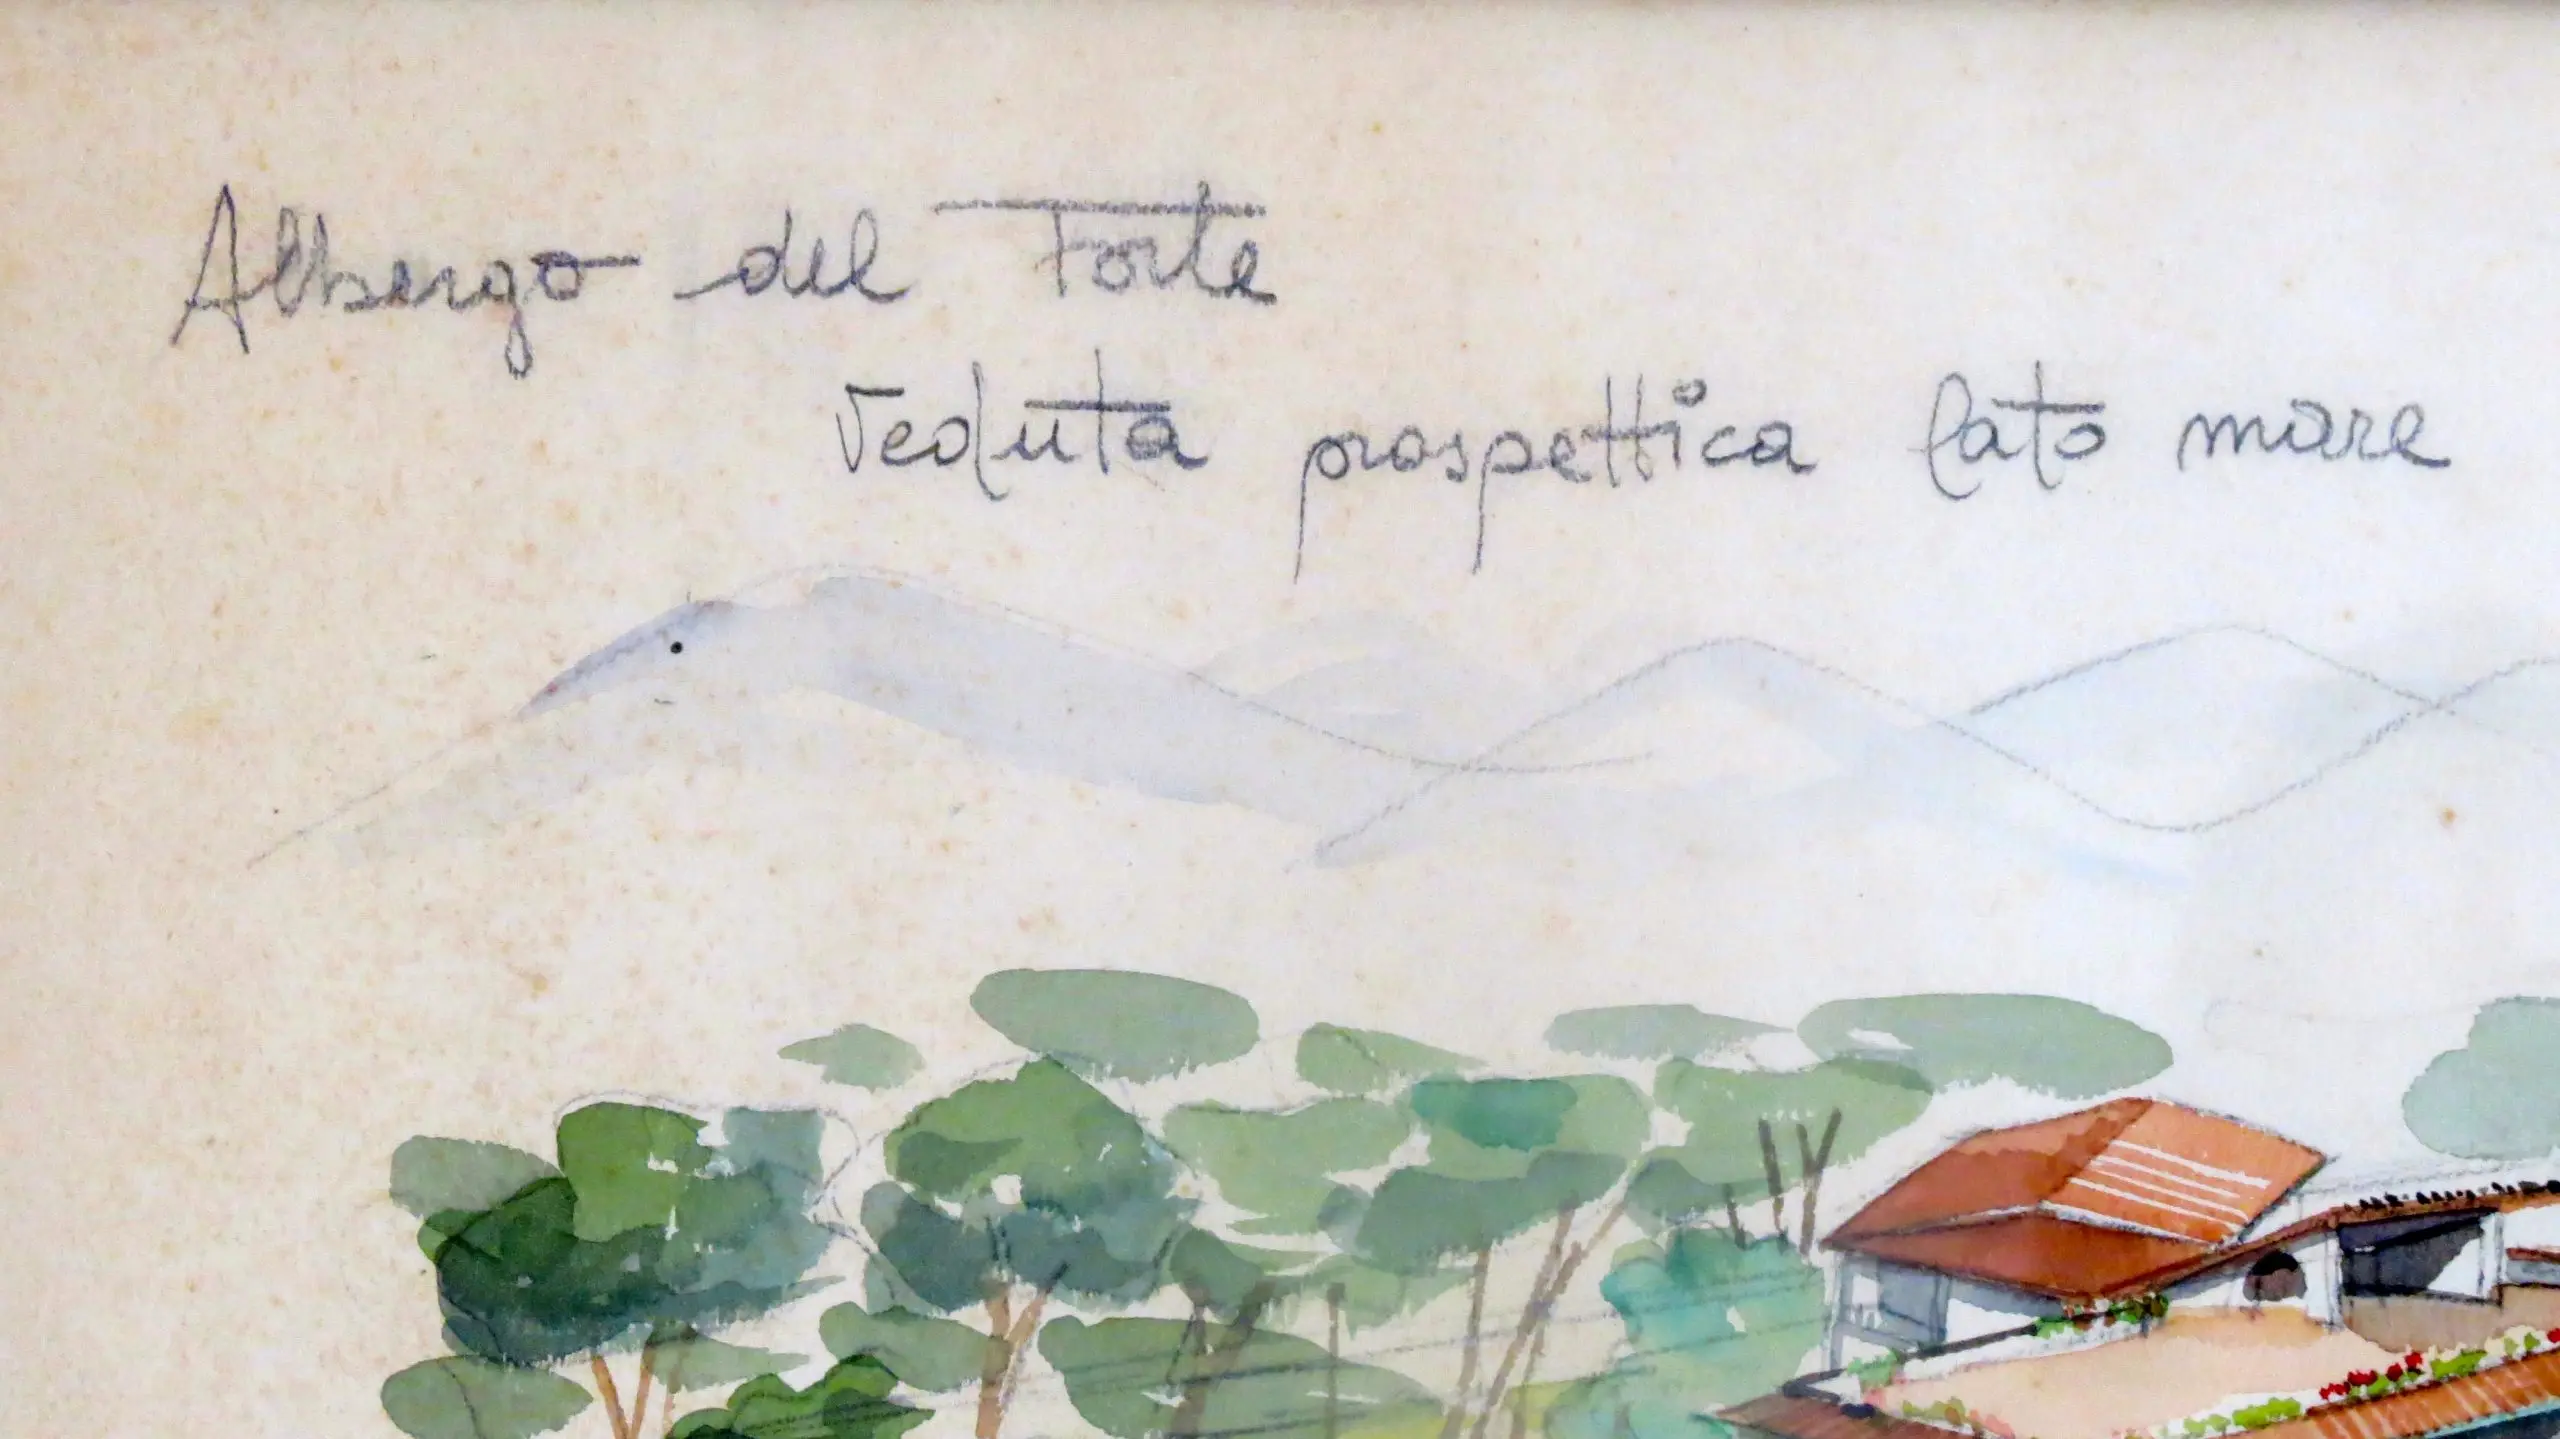 Albergo del Forte
Veduta prospettica lato mare